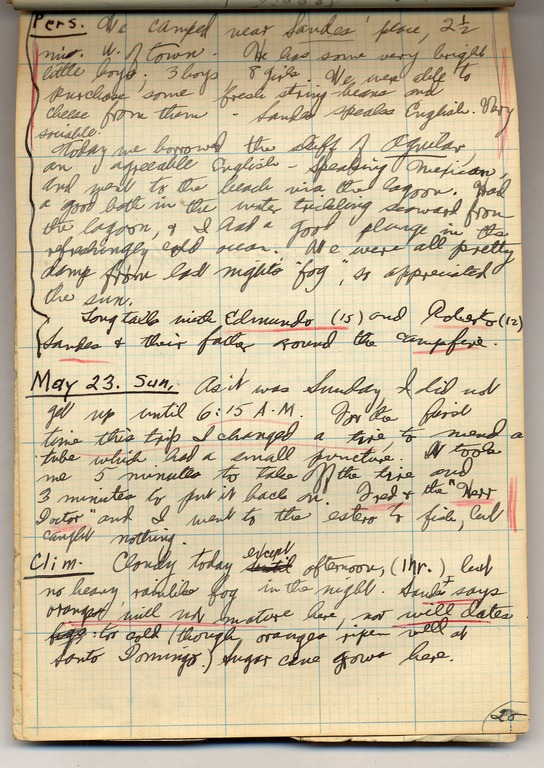 Pers. We camped near Sandes' place, 2½
mi. N. of town. He has some very bright
little boys; 3 boys 8 girls. We were able to
purchase some fresh string-beans and
cheese from them. Sandes speaks English. Very
sociable.
Today we borrowed the skiff of Aguilar,
an agreeable English-speaking Mexican,
and went to the beach via the lagoon. Had
a good bath in the water trickling seaward from
the lagoon, & I had a good plunge in the
refreshingly cold ocean. We were all pretty
damp from last night's "fog", so appreciated
the sun.
Long talk with Edmundo (15) and Roberto (12)
Sandes & their father around the campfire.
May 23. Sun. As it was Sunday I did not
get up until 6:15 A.M. For the first
time this trip I changed a tire to mend a
tube which had a small puncture. It took
me 5 minutes to take off the tire and
3 minutes to put it back on. Fred & the "Herr
Doctor" and I went to the estero to fish, but
caught nothing.
Clim. Cloudy today except afternoon, (1 hr.) but
no heavy rainlike fog in the night. Sandes says
oranges will not mature here, nor will dates
figs: too cold (though oranges ripen well at
Santo Domingo.) Sugar cane grows here.
20